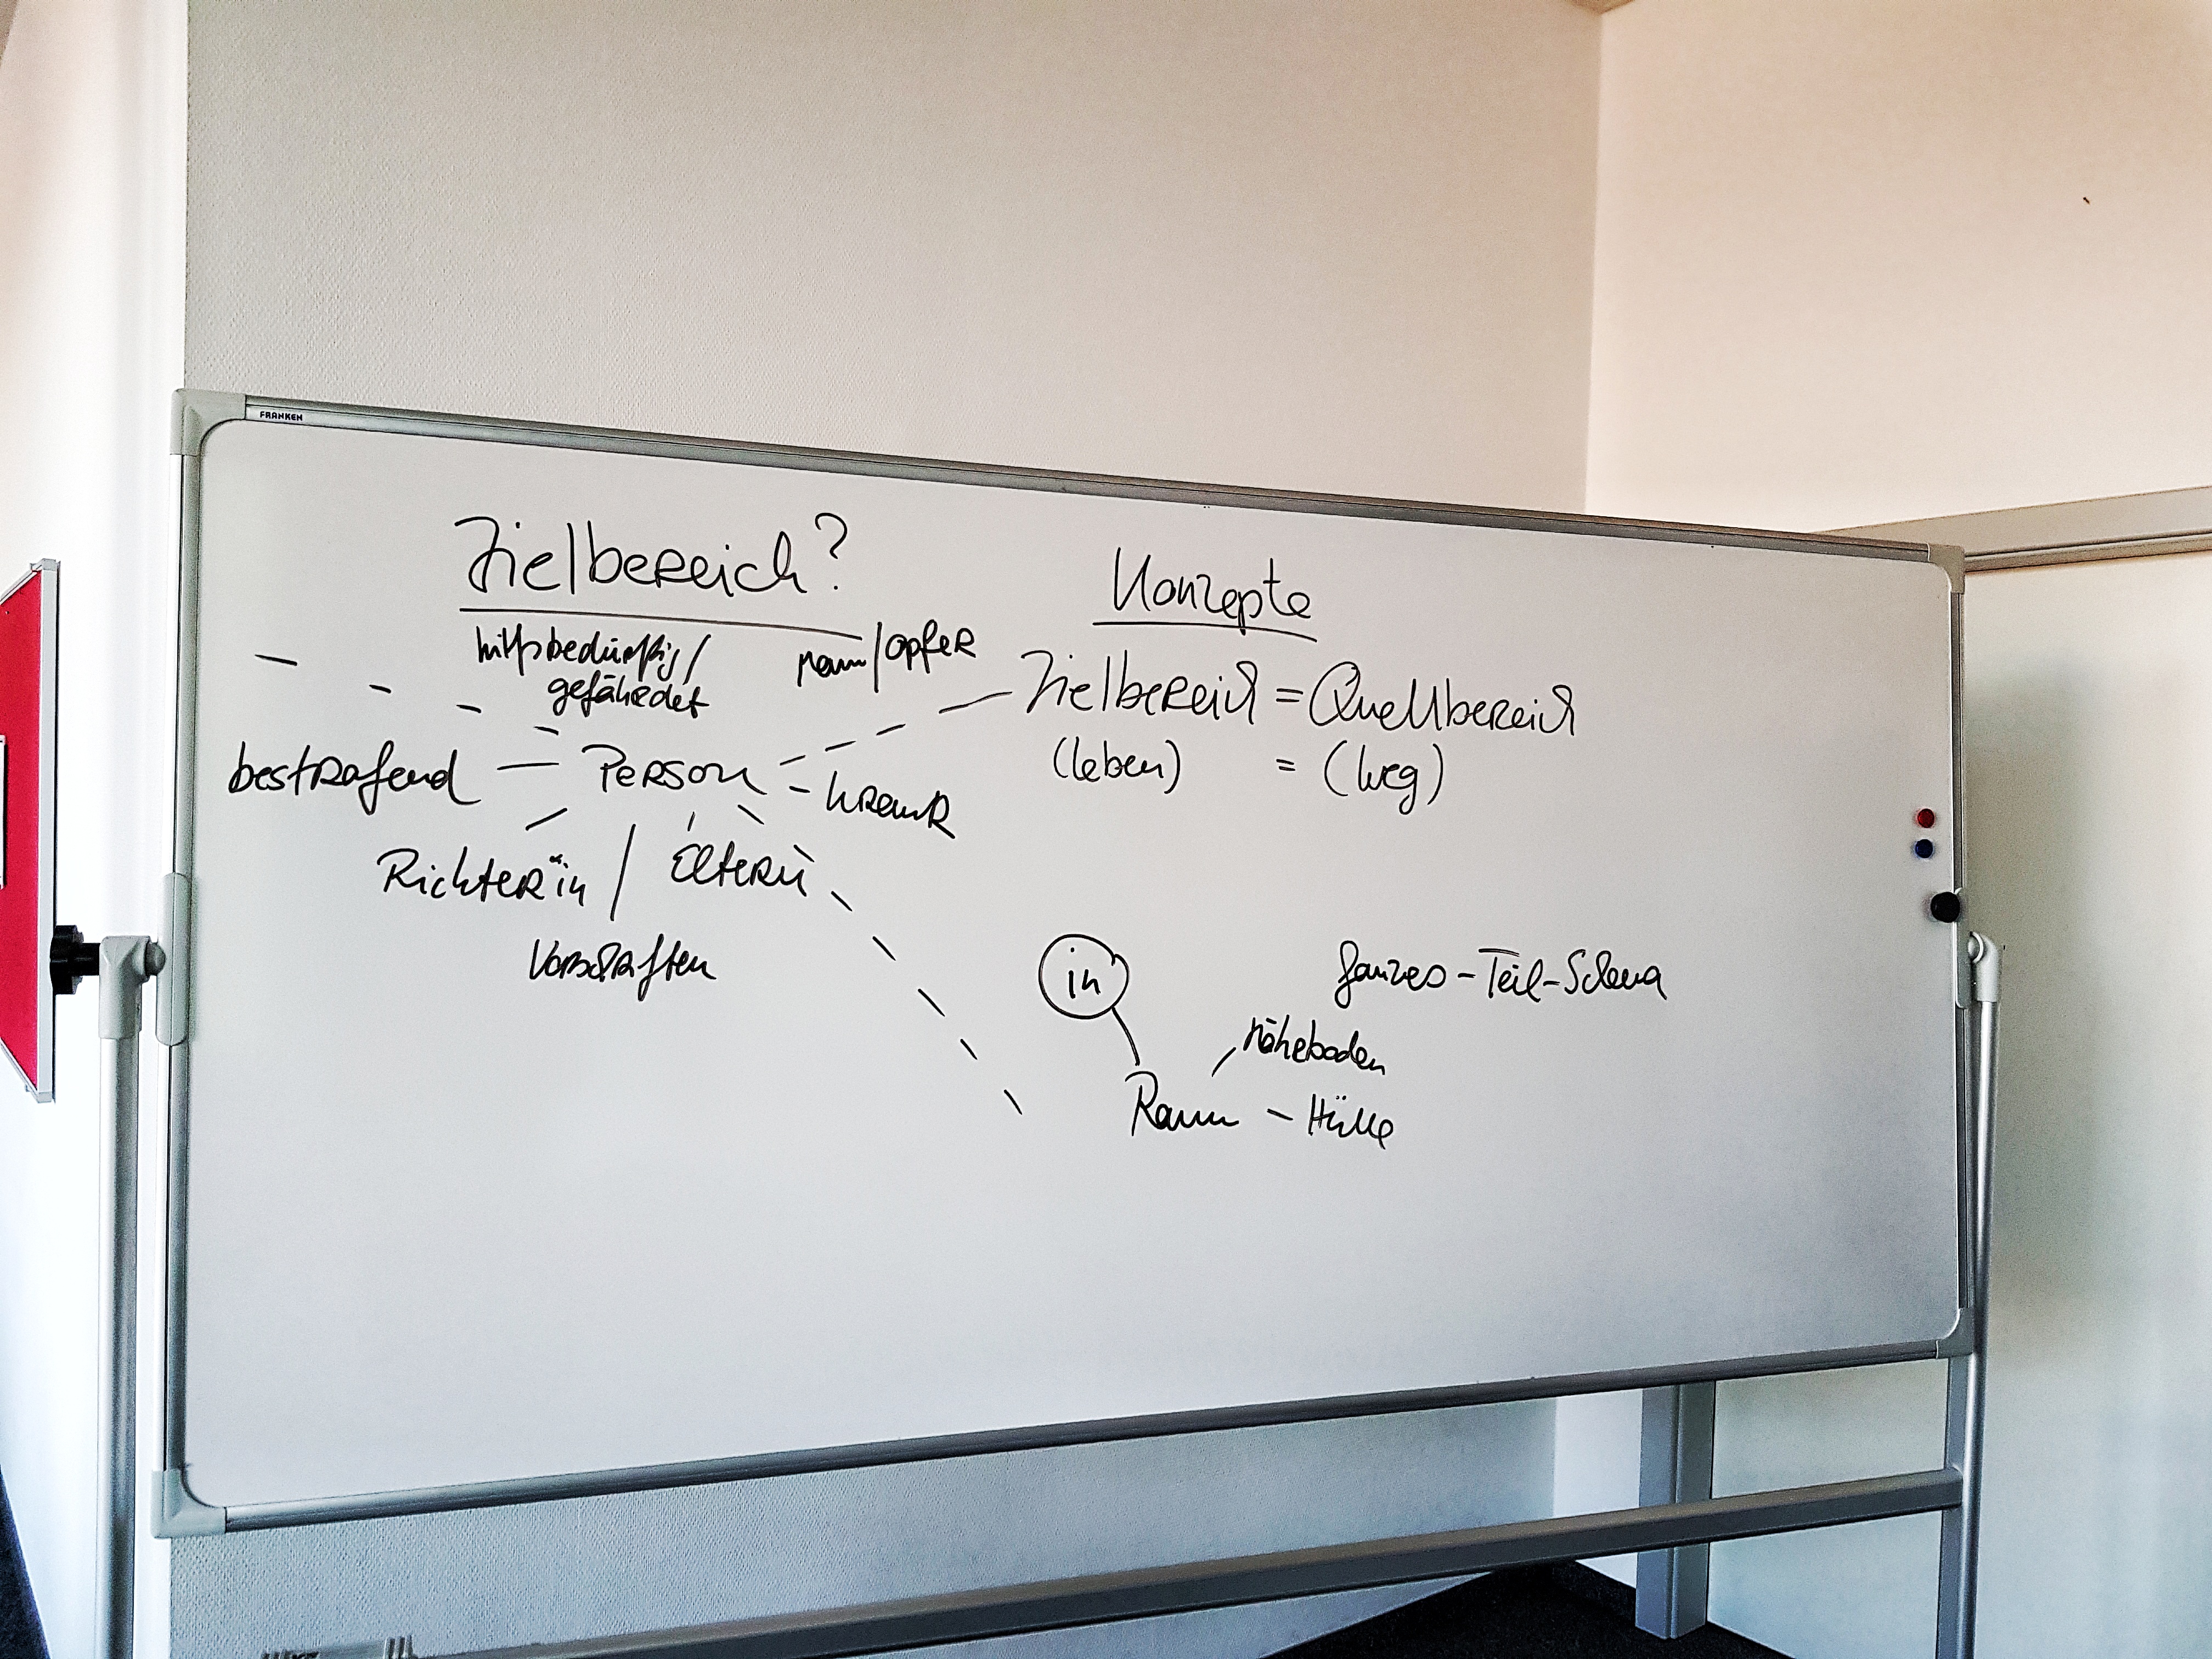 FRANKEN
Zielbereich?
hilfsbedürftig/
gefährdet
/Opfer
bestrafend — Person — krank
Richter*in / Eltern
Konzepte
Zielbereich = Quellbereich
(leben) = (Weg)
in
Ganzes-Teil-Schema
Raum - Hülle